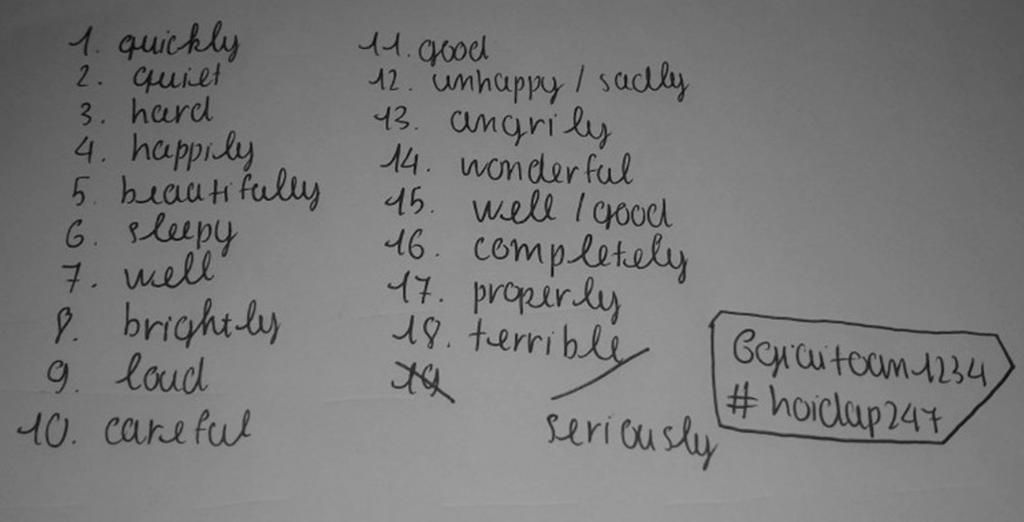 1. quickly
2. quiet
3. hard
4. happily
5. beautifully
6. sleepy
7. well
8. brightly
9. loud
10. careful
11. good
12. unhappy / sadly
13. angrily
14. wonderful
15. well / good
16. completely
17. properly
18. terrible /
seriously
19
Ggiaitoan1234
# hoidap247